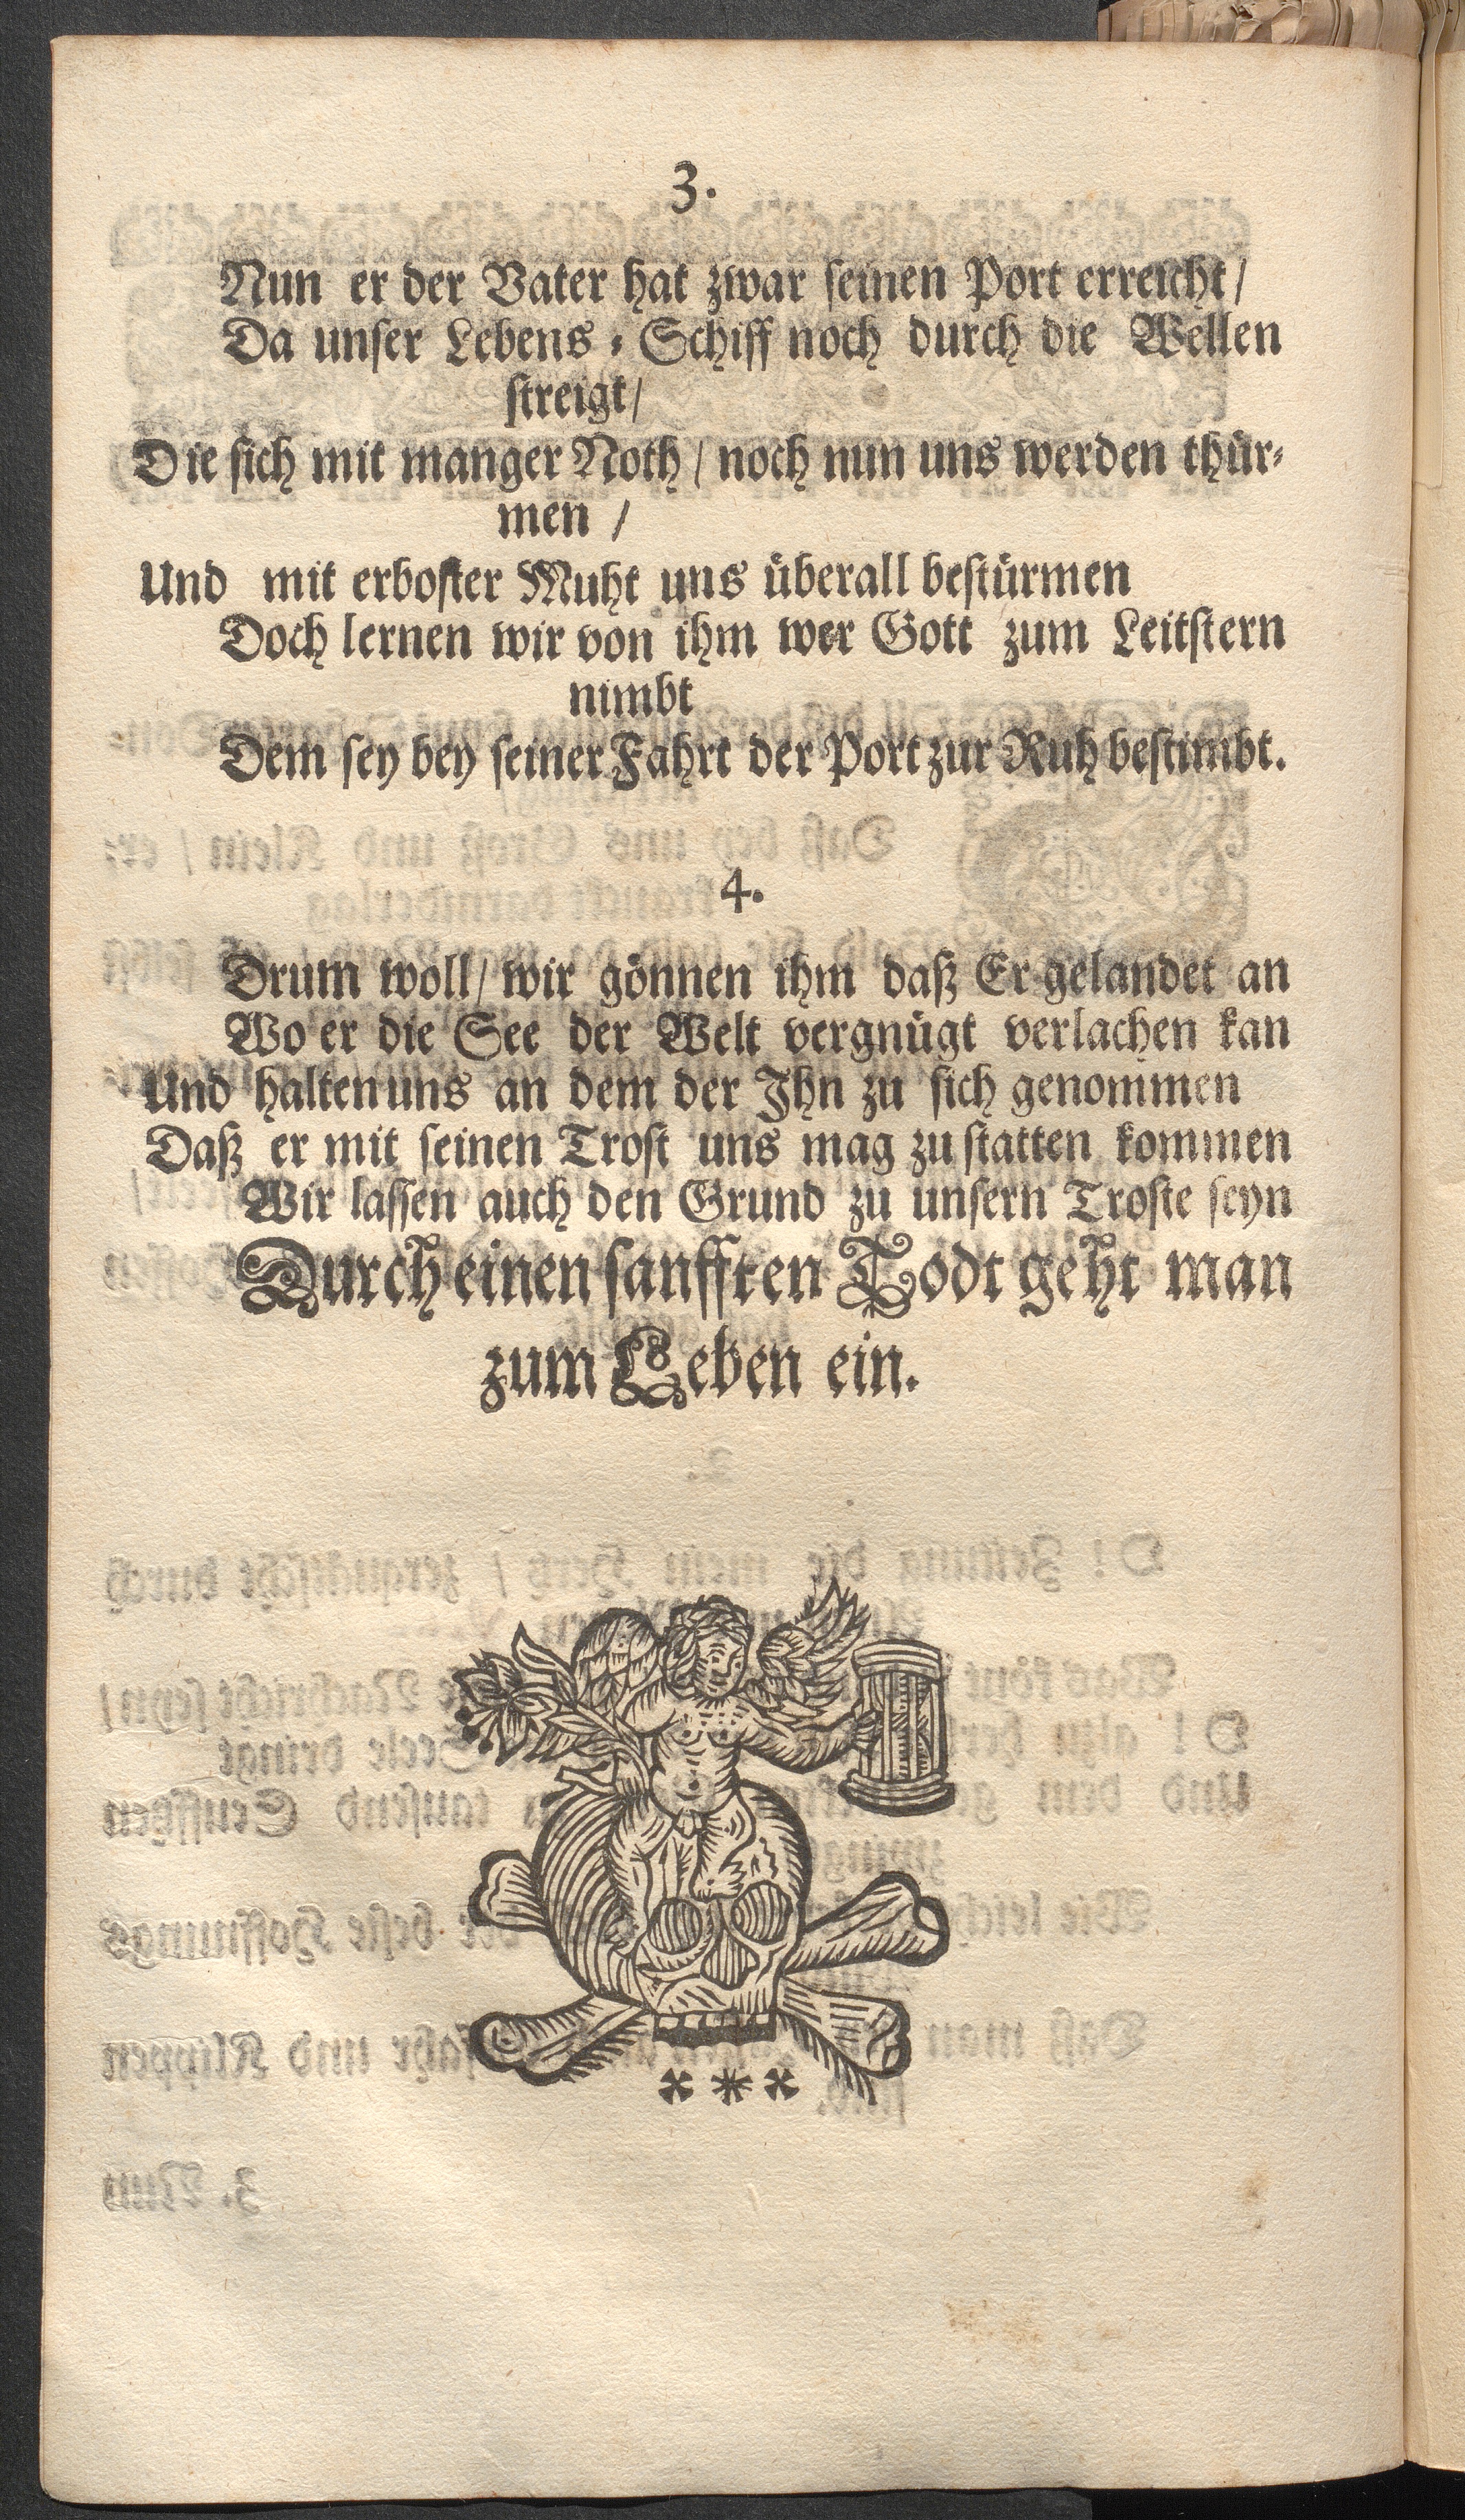 3.
Nun er der Vater hat zwar ſeinen Port erreicht/
Da unſer Lebens⸗Schiff noch durch die Wellen
ſtreigt/
Die ſich mit manger Noth/ noch nun uns werden thür⸗
men /
Und mit erboſter Muht uns überall beſtürmen
Doch lernen wir von ihm wer Gott zum Leitſtern
nimbt
Dem ſey bey ſeiner Fahrt der Port zur Ruh beſtimbt.
4.
Drum woll/ wir gönnen ihm daß Er gelandet an
Wo er die See der Welt vergnügt verlachen kan
Und halten uns an dem der Ihn zu ſich genommen
Daß er mit ſeinen Troſt uns mag zu ſtatten kommen
Wir laſſen auch den Grund zu unſern Troſte ſeyn
Durch einen ſanfften Todt geht man
zum Leben ein.
* * *